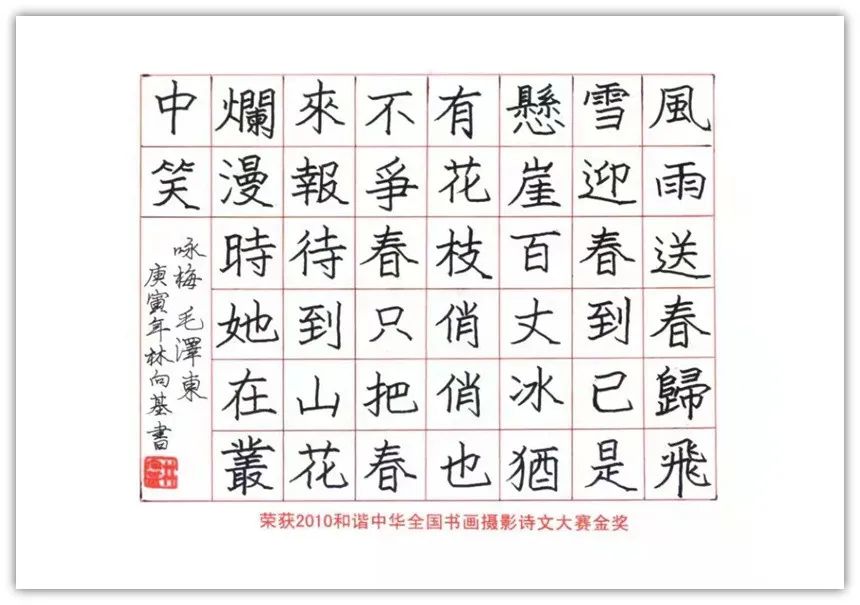 風雨送春歸飛
雪迎春到已是
懸崖百丈冰猶
有花枝俏俏也
不爭春只把春
來報待到山花
爛漫時她在叢
中笑
咏梅 毛澤東
庚寅年林向基書
荣获2010和谐中华全国书画摄影诗文大赛金奖